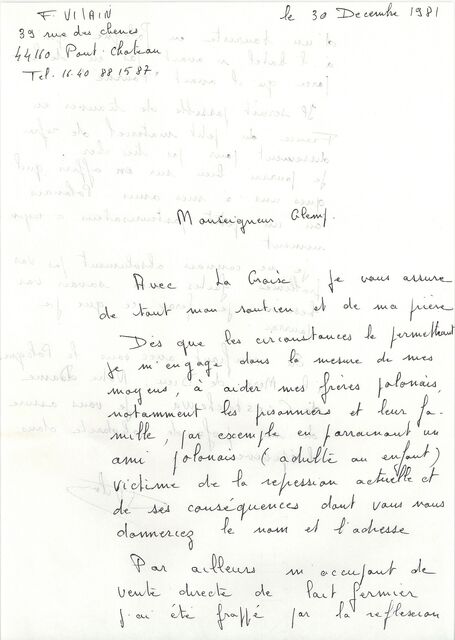 F. VILAIN
39 rue des chenes
44160 Pont. Chateau
Tel. 16.40 88 15 87
le 30 Decembre 1981
Monseigneur Glemp.
Avec La Croix je vous assure
de tout mon soutien et de ma prière
Dès que les circonstances le permettront
je m'engage dans la mesure de mes
moyens, à aider mes frères polonais,
notamment les prisonniers et leur fa-
mille, par exemple en parrainant un
ami polonais (adulte ou enfant)
victime de la repression actuelle et
de ses conséquences dont vous nous
donnerez le nom et l'adresse
Par ailleurs m'occupant de
vente directe de lait fermier
j'ai été frappé par la reflexion